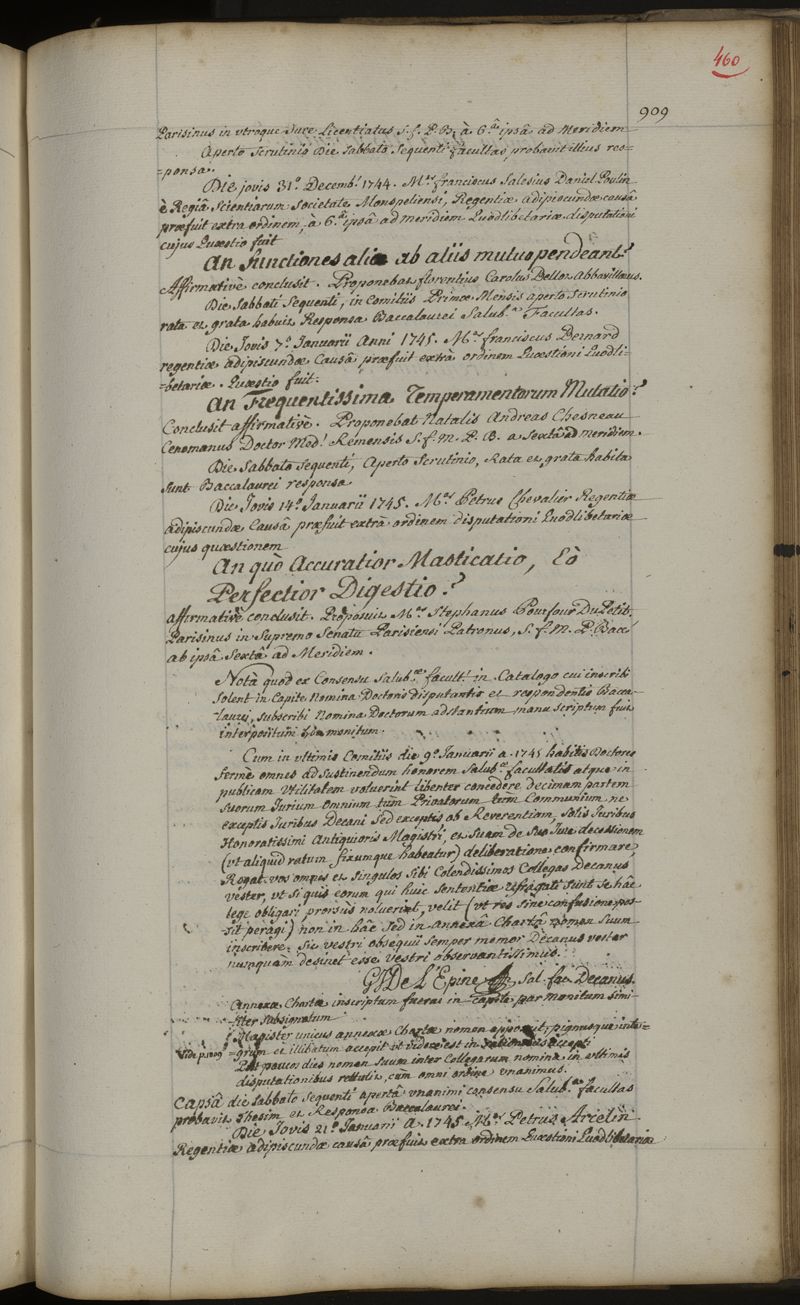 460
909
Parisinus in utroque Jure Licentiatus S. f. P. B. à 6.â ipsâ ad Meridiem
Aperto Scrutinio Die Sabbato Sequenti facultas probavit illius res=
=ponsa.
Die jovis 31.a Decemb.! 1744. M.er franciscus Salesius Daniel Poulin
è Regiâ Scientiarum Societate Monspeliensi, Regentiæ adipiscundæ causâ
præfuit extra ordinem, à 6.â ipsâ ad meridiem Quodlibetariæ disputationi
cujus Quæstio fuit
An functiones aliæ ab aliis mutuo pendeant?
Affirmativè conclusit. Proponebat florentius Carolus Bellot Abbavillæus.
Die Sabbati Sequenti, in Comitiis Primæ Mensis aperto Scrutinio
rata et grata habuit Responsa Baccalaurei Salub. Facultas.
Die Jovis 7.a Januarii Anni 1745. M.er franciscus Bernard
regentiæ adipiscundæ Causâ præfuit extrà ordinem Quæstioni Quodli=
=betariæ. Quæstio fuit:
An Frequentissima Temperamentorum Mutatio?
Conclusit affirmativè. Proponebat Natalis Andreas Chesneau
Cenomanus Doctor Med.! Remensis S. f. M. P. B. a Sextâ ad meridiem.
Die Sabbato Sequenti, Aperto Scrutinio, Rata et grata habita
Sunt Baccalaurei responsa
Die Jovis 14.a Januarii 1745. M.er Petrus Chevalier Regentiæ
adipiscundæ Causâ præfuit extrà ordinem disputationi Quodlibetariæ
cujus quæstionem
An quò Accuratior Masticatio, Eò
Perfectior Digestio?
affirmativè conclusit. Proposuit M.er Stephanus Pourfour Du Petit,
Parisinus in Supremo Senatu Parisiensi Patronus, S. f. M. P. Bacc.
ab ipsâ Sextâ ad Meridiem.
Notâ quod ex Consensu Salub. facult.! in Catalogo cui inscribi
Solent in Capite Nomina Doctoris disputantis et respondentis Bacca-
laurei, subscribi Nomina Doctorum adstantium manu scriptum fuit
interpositum monitum.
Cum in ultimis Comitiis die 9.a Januarii a. 1745 habitis Doctores
fermè omnes ad Sustinendum honorem Salub. facultatis atque in
publicam Utilitatem voluerint libenter concedere decimam partem
Suorum Jurium Omnium tùm Privatorum tùm Communium ne
exceptis Juribus Decani Sed exceptis ob Reverentiam, Solis Juribus
Honoratissimi Antiquioris Magistri, et Suam de Suo Jure decessionem
(ut aliquid ratum fixumque habeatur) deliberatione confirmare,
Rogat vos omnes et Singulos Sibi Colendissimos Collegas Decanus
vester, ut Si quis eorum qui huic Sententiæ refragati Sunt Se hâc
lege obligari prorsùs noluerint, velit (ut res Sine confusione pos-
-sit peragi) non in hâc Sed in annexâ Chartâ Nomen Suum
inscribere. Sic vestri obsequii Semper memor Decanus vester
numquàm desinet esse vestri observantissimus.
GJDe L'Epine Sal. fac. Decanus.
Annexæ Chartæ inscriptum fuerat in capite par monitum simi-
-liter Subsignatum
Magister unicus annexæ Chartæ nomen apposuit, pignusque inte=
=grum et illibatum accepit ut videre est in accepti
Vide p. 1009
Post paucos dies nomen Suum inter Collegarum nomina in ultimis
disputationibus rettulit, cum omni ordine unanimus.
Capsâ die Sabbato Sequenti apertâ unanimi consensu Salub. facultas
probavit Thesim et Responsa Baccalaurei.
Die Jovis 21.a Januarii A. 1745. M.er Petrus Arcelin
Regentiæ adipiscundæ causâ præfuit extra ordinem Quæstioni Quodlibetariæ